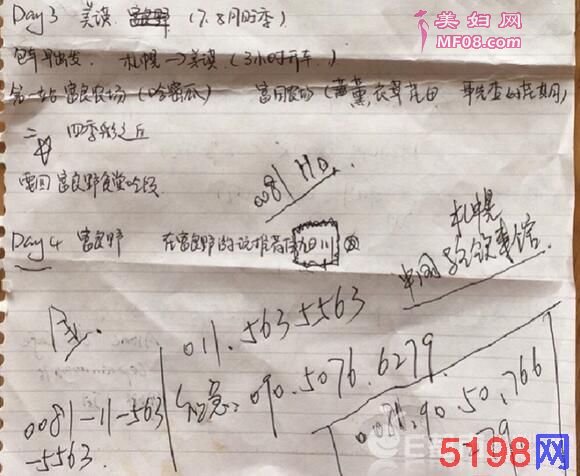 Day 3 美瑛 富良野 (7.8月时季)
包车早出发. 札幌→美瑛 (3小时开车.)
第一站 富良农场 (哈密瓜) 富田农场 (薰衣草花田 事先查好花期)
二 四季彩之丘
要回 富良野食堂吃饭
0081 HD
Day 4 富良野 在富良野游玩推荐住旭川
札幌
中国 总领事馆
011.563 5563
0081-11-563
-5563.
紧急: 090.5076.6279
0081.90.50.766
279
美妇网
MF08.com
5198网